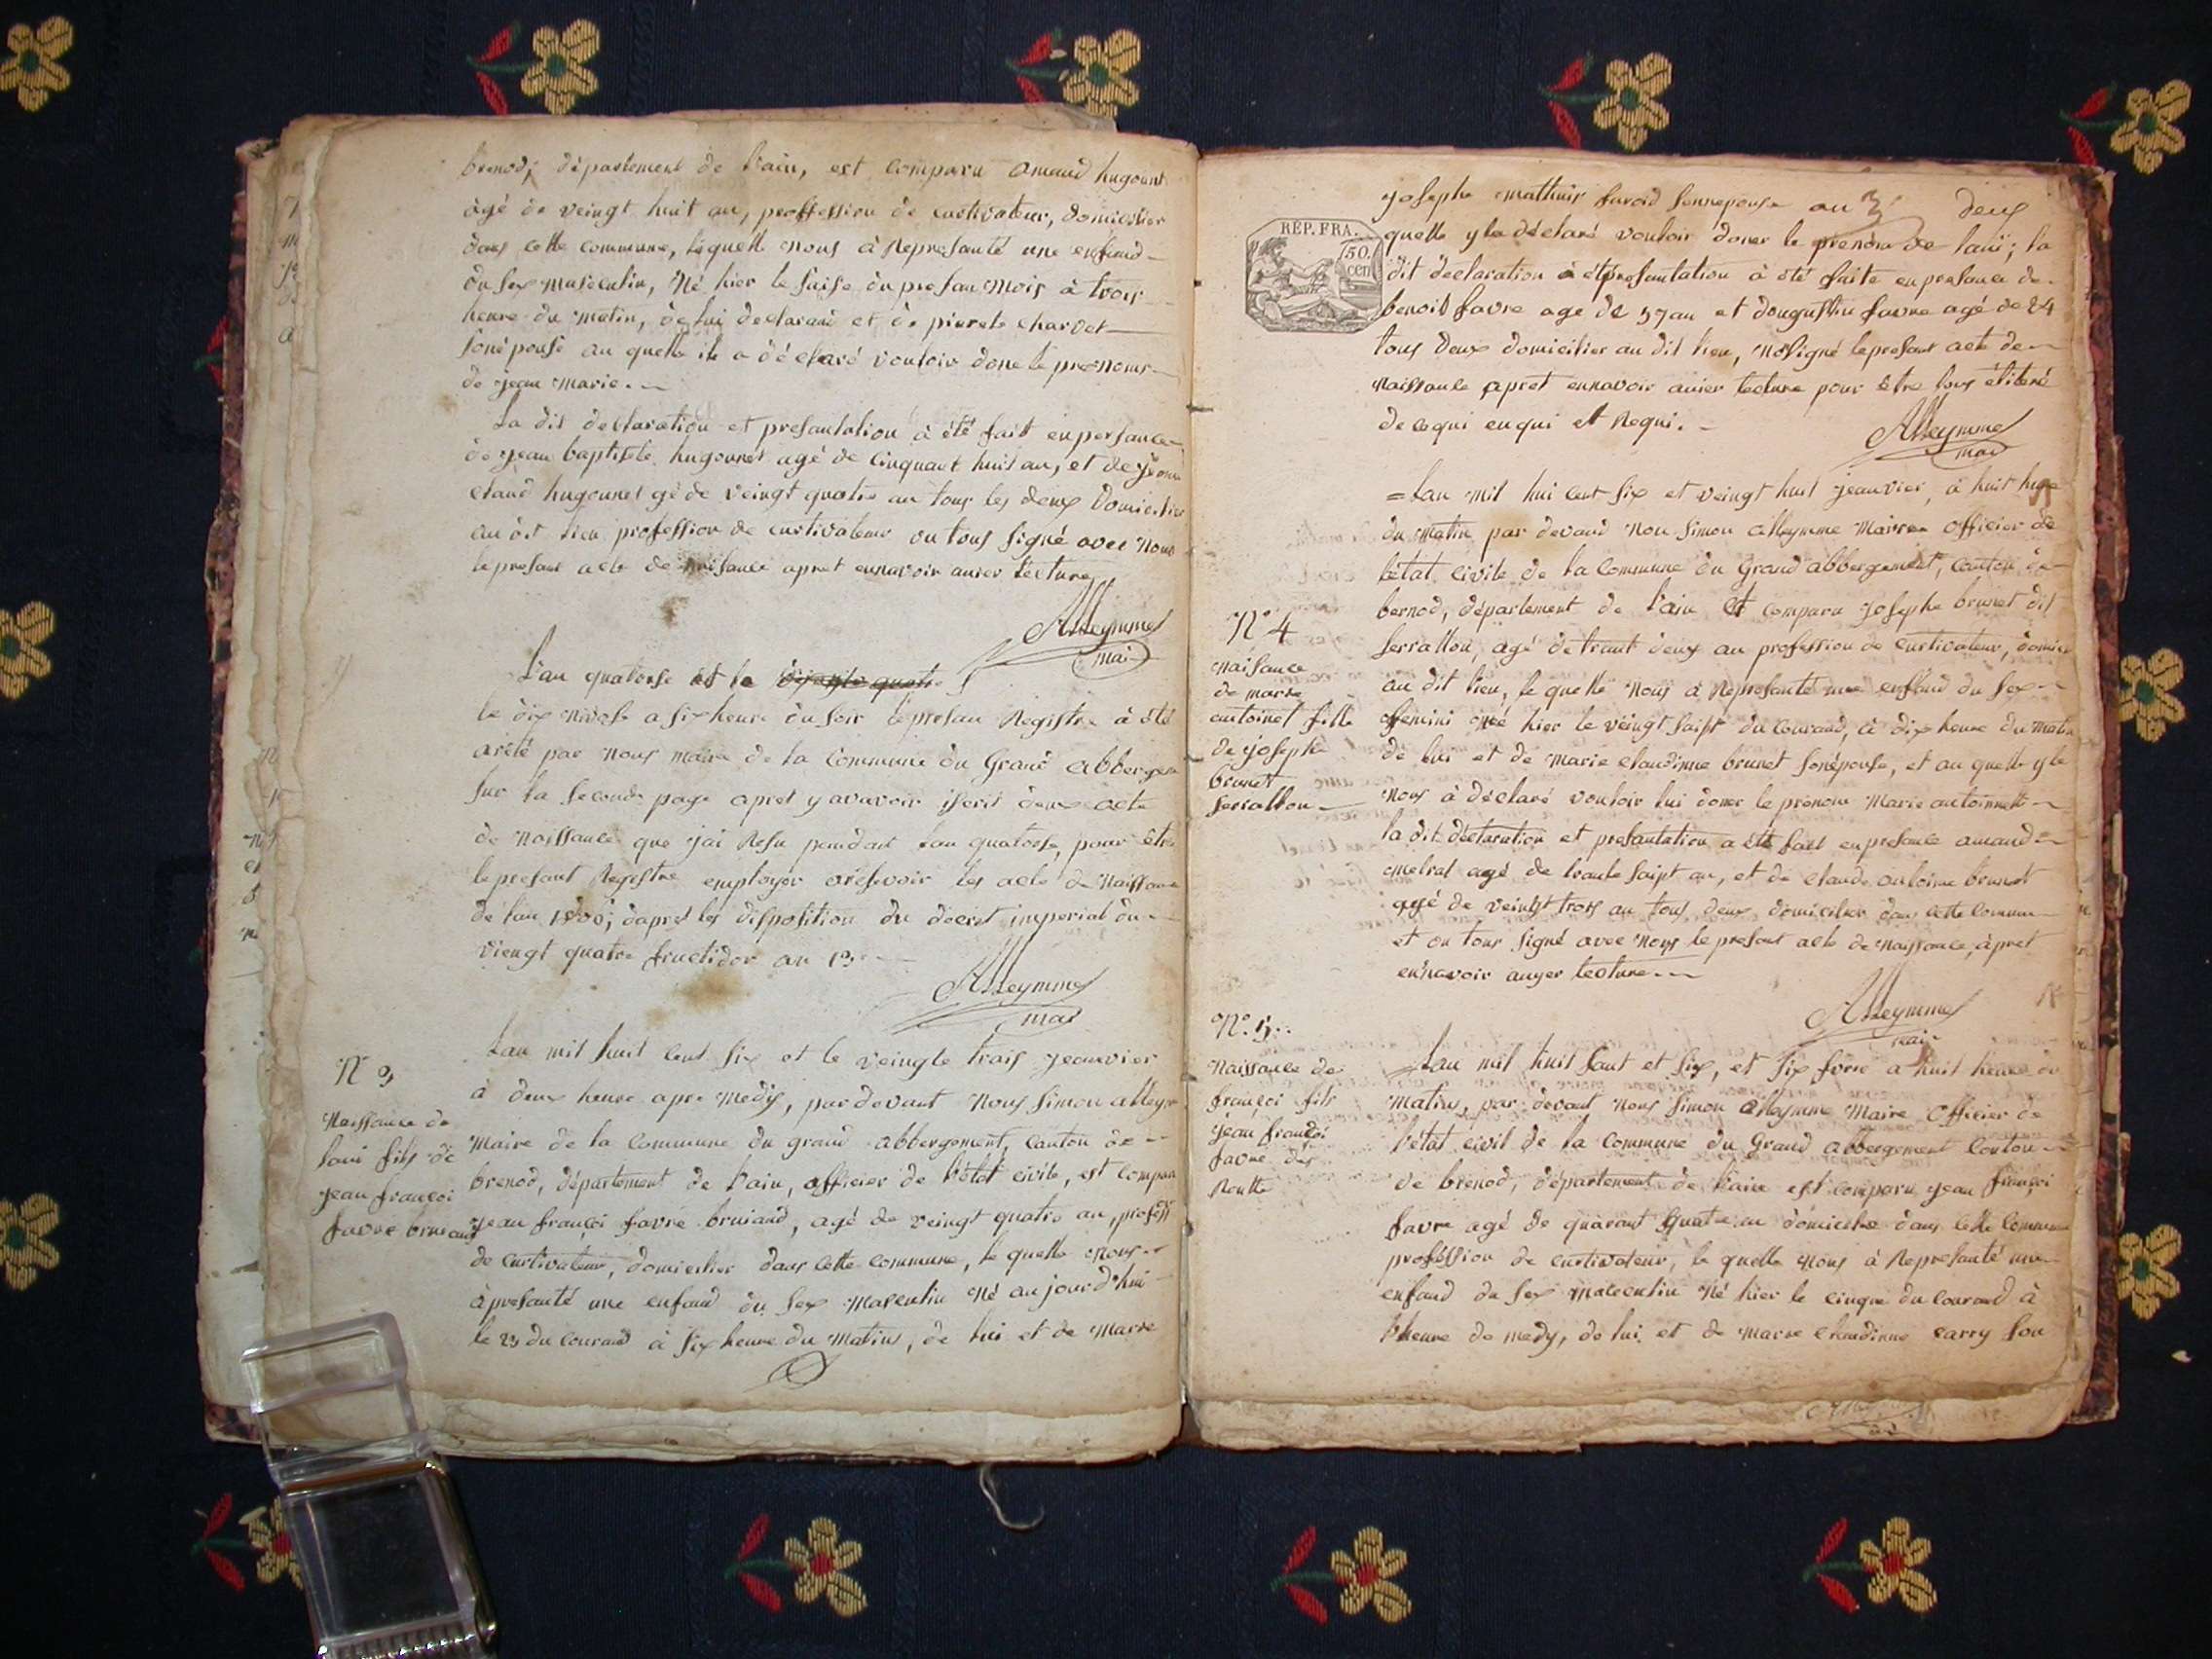 brenod; département de l'ain, est comparu amand hugonet
àgé de veingt huit an, proffession de curtivateur, domicilier
dans cette commune, lequelle nous à Represanté une enfand
du sex musculin, Né hier le saise du presan mois à trois
heure du matin, de lui declarant et de pierete charvet
sonépouse au quelle ile a déclaré vouloir done le prenoms
de jean marie.
La dit declaration et presantation à été fait enpersance
de jean baptiste hugonnet agé de cinquant huit an, et de
claud hugonnet gé de veingt quatre an tous les deux domicilier
au dit lieu profession de curtivateur on tous signé avec nous
le presant acte de naisance apret ennavoir anier lecture
Alleymme
mai
L'an quatorse et le
le dix nivose a six heure du soir le presan Registre à été
arété par nous maire de la Commune du Grand abbergem
sur la seconde page apret y avavoir iscrit deux acte
de naissance que j'ai Resu pendant lan quatorse, pour être
le presant Registre employer aresevoir les acte de Naissance
de l'an 1806; dapret les disposition du decret imperial du
viengt quatre fructidor an 13
Alleymme
mai
N 3
Naissance de
loui fils de
jean françoi
favre bruiand
Lan mil huit cent six et le veingte trais jeanvier
à deux heure apre medis, pardevant nous simon alleyme
maire de la commune du grand abbergement, canton de
brenod, département de l'ain, officier de l'état civile, est compar
jean françoi favre bruiand, agé de veingt quatre an, profess
de curtivateur, domicilier dans cette commune, le quelle nous
àpresanté une enfand du sex masculin né aujourd'hui
le 23 du courand à six heure du matins, de lui et de marie
josephe mathieu favoid sonnepouse au deux
quelle y la déclaré vouloir doner le prenom de laui; la
dit declaration et presantation à été faite enpresance de
benoit favre age de 57 an et dougustin favre agé de 24
tous deux domicilier au dit lieu, nosigné lepresant acte de
naissance apret ennavoir anier lecture pour être tous
de ce qui enqui et Requi.
RÉP. FRA.
50.
cen
Alleymme
mai
Lan mil hui cent six et veingt huit jeanvier, à huit hure
du matin par devand Nou simon alleymme Maire officier de
létat civile de la commune du Grand abbergement, canton de
bernod, département de l'ain et comparu josephe brunet dit
serrallou, agé de traut deux an profession de curtivateur, domici
au dit lieu, le quelle nous à Represanté une enffand du sex
femini née hier le veingt saipt du courand, à dix heure du matin
de lui et de marie claudinne brunet sonépouse, et au quelle y le
nous à déclaré vouloir lui doner le prenom marie antoinnett
la dit déclaration et presantation a été fait enpresance amand
metral agé de trante saipt an, et de claude antoine brunet
agé de veingt trois an tous deux domicilier dans cette commune
et on tous signé avec nous le presant acte de naissance, àpret
ennavoir anyer lecture
N° 4
naisance
de marie
antoinet fille
de josephe
brunet
serrallou
Alleymme
mai
N° 5
Naissance de
françoi fils
jean françoi
favre des
Routte
Lan mil huit sant et six, et six fvrie a huit heure du
matins, par devant nous simon alleymme Maire officier de
l'etat civil de la commune du Grand abbergement Conton
de brenod, département de l'ain est comparu jean françoi
favre agé de quarant quatre an domicilie dans cette commune
proféssion de curtivateur, le quelle nous à Represanté une
enfand du sex masculin Né hier le cinque du courand à
l'heure de medy, de lui et de marie claudinne carry son